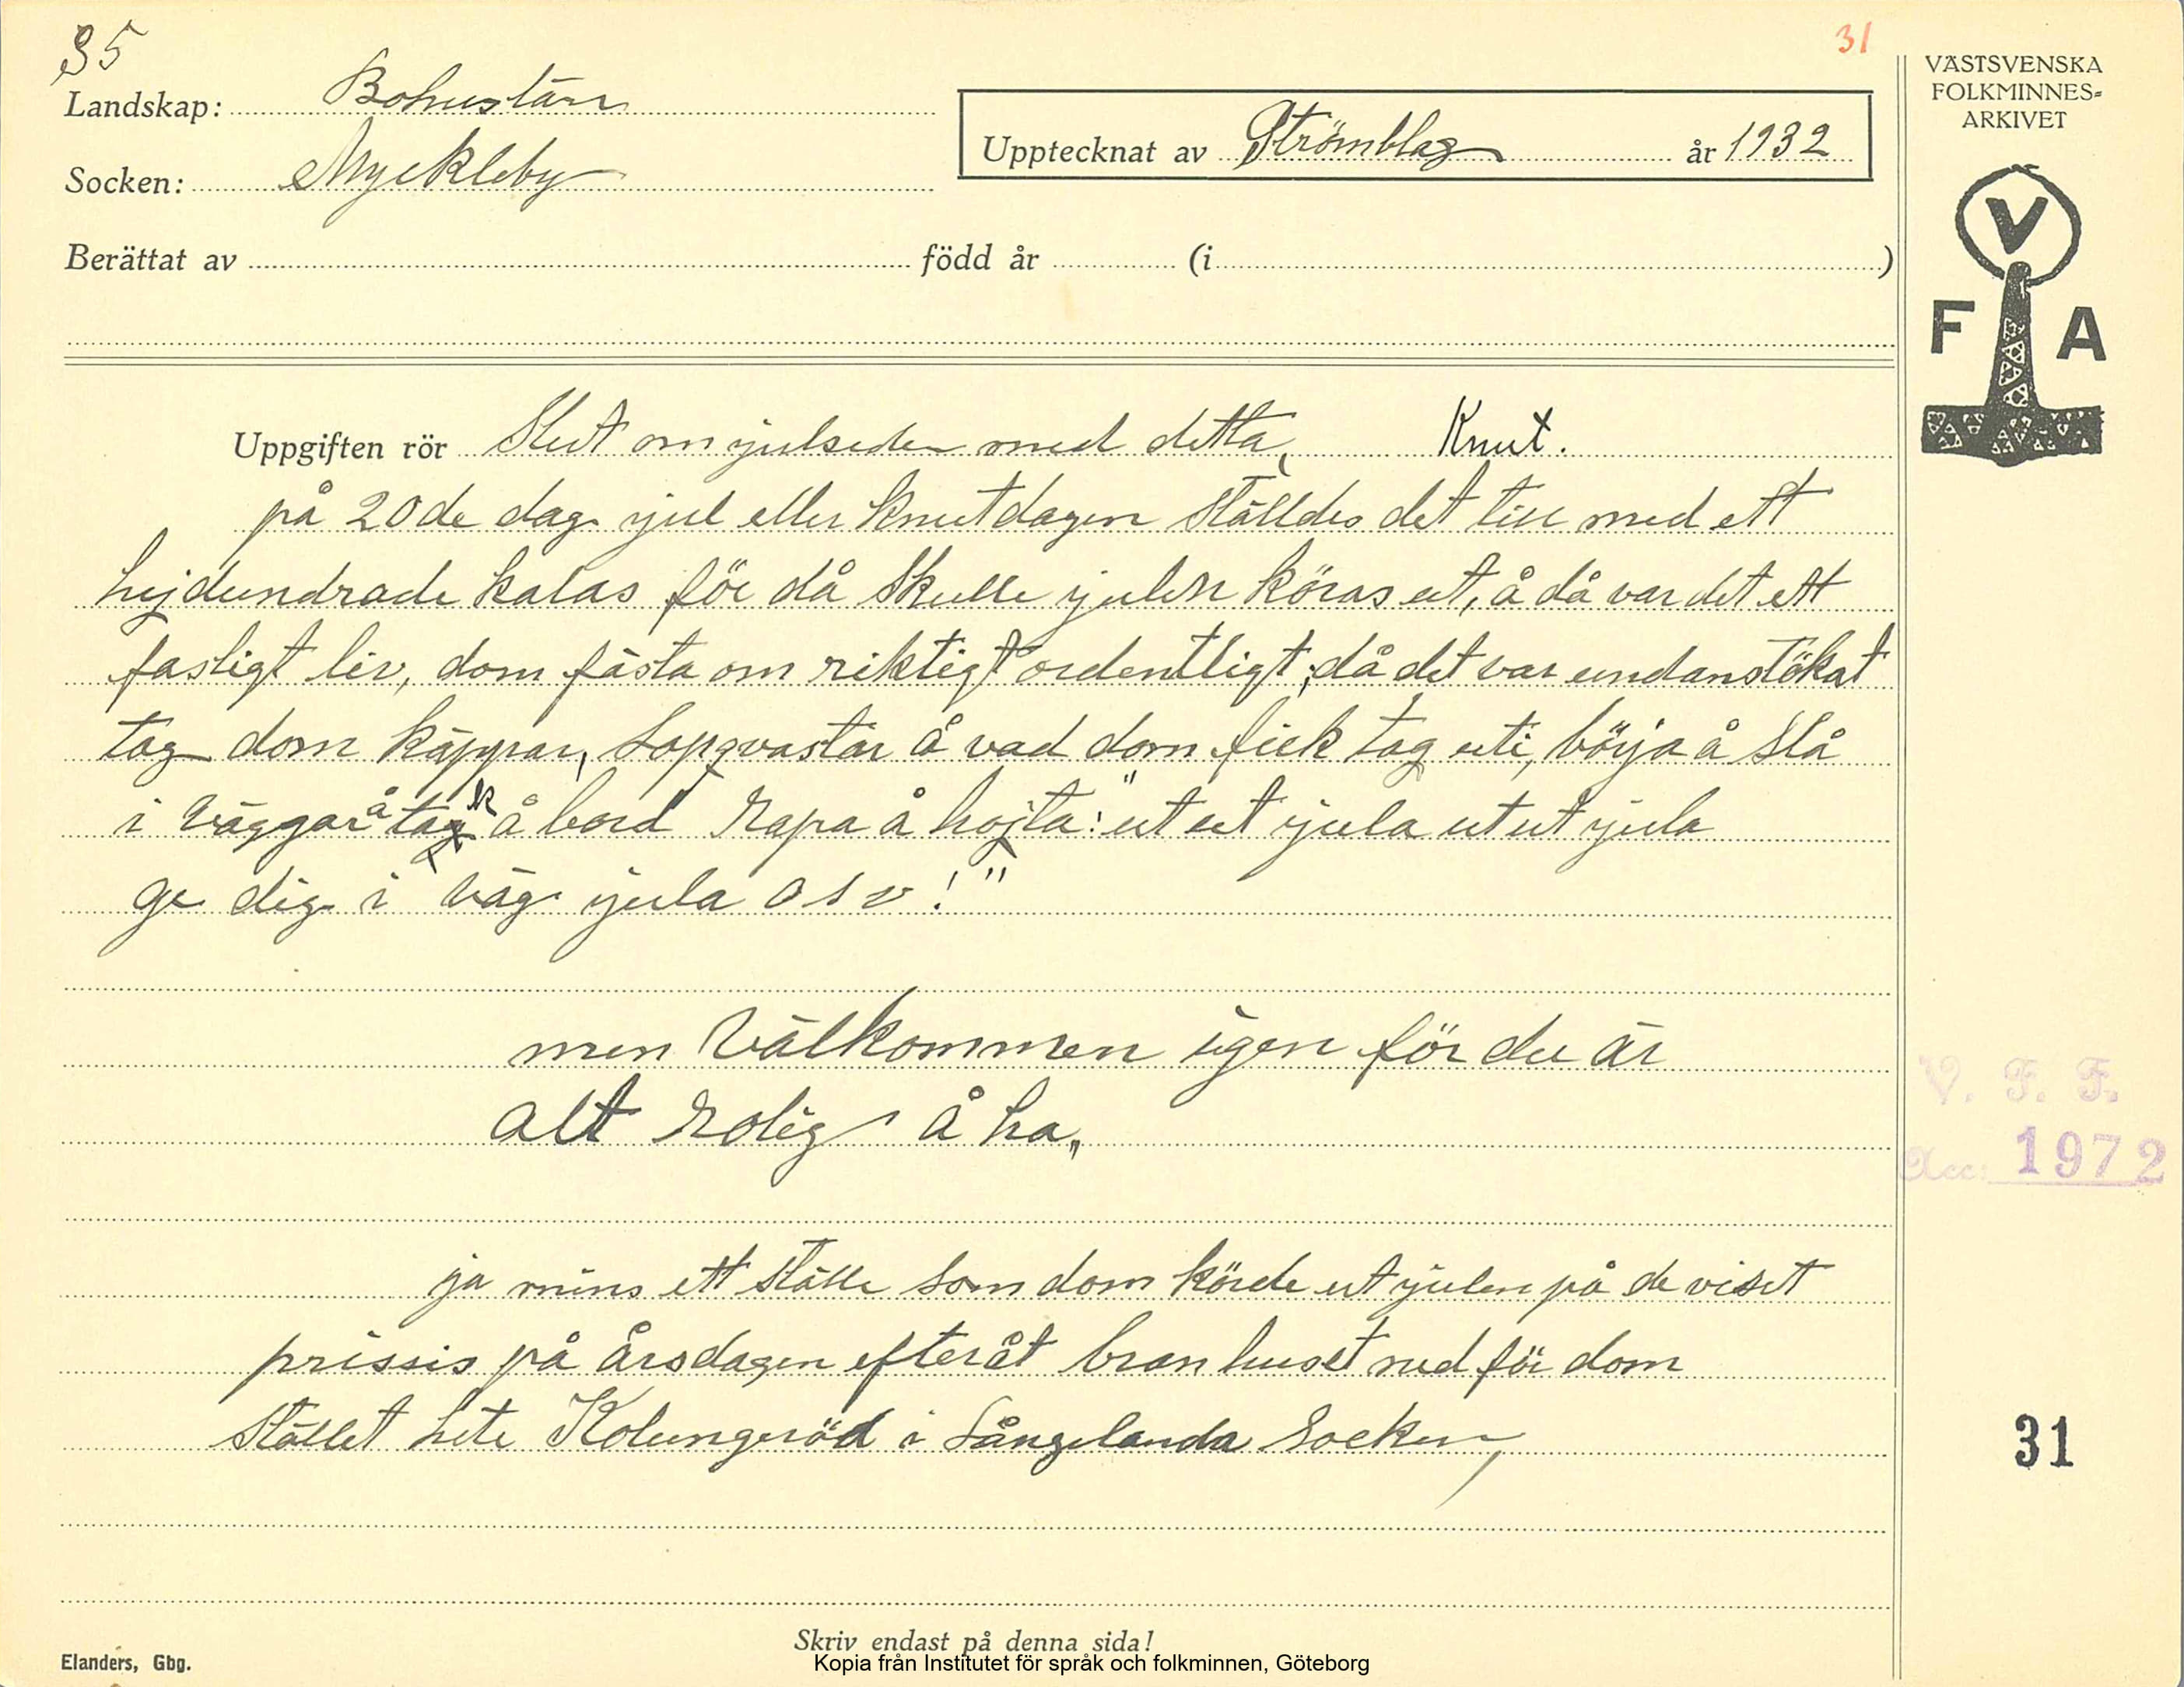 35
31
Landskap: Bohuslän
Socken: Myckleby
Upptecknat av Strömblag år 1932
Berättat av född år (i )
VÄSTSVENSKA
FOLKMINNES-
ARKIVET
V
F A
Uppgiften rör Slut om julseder med detta, Knut.
på 20de dag jul eller knutdagen ställdes det till med ett
hejdundrade kalas för då skulle julen köras ut, å då var det ett
fasligt liv, dom fästa om riktigt ordentligt, då det var undanstökat
tog dom käppar, sopqvastar å vad dom fick tag uti, börja å slå
i väggar å tak å bord rapa å hojta: "ut ut jula ut ut jula
ge dig i väg jula o s v!"
men Välkommen igen för du är
alt rolig å ha„
ja mins ett ställe som dom körde ut julen på de viset
prissis på årsdagen efteråt bran huset ned för dom
stället hete Kolungeröd i Långelanda Socken,
V. F. F.
Acc: 1972
31
Skriv endast på denna sida!
Elanders, Gbg.
Kopia från Institutet för språk och folkminnen, Göteborg